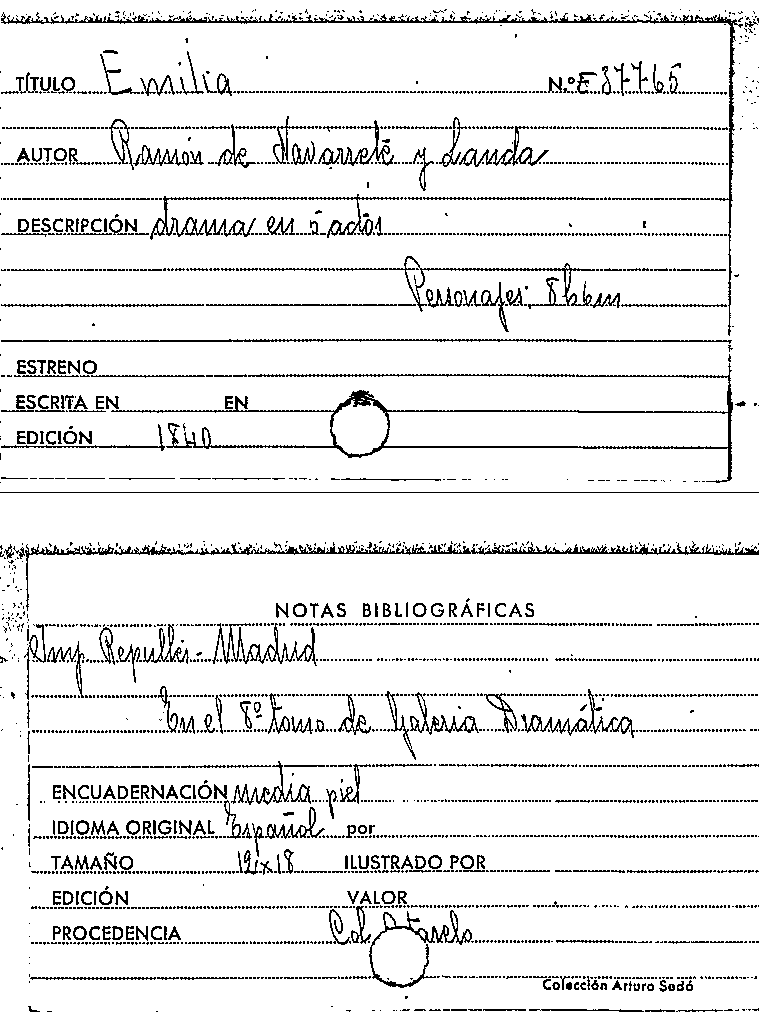 TÍTULO Emilia N.º E 37765
AUTOR Ramón de Navarrete y Landa
DESCRIPCIÓN drama en 5 actos
Personajes: 8h6m
ESTRENO
ESCRITA EN EN
EDICIÓN 1840
NOTAS BIBLIOGRÁFICAS
Imp Repullés - Madrid
En el 8º tomo de Galeria Dramática
ENCUADERNACIÓN media piel
IDIOMA ORIGINAL Español por
TAMAÑO 12x18 ILUSTRADO POR
EDICIÓN VALOR
PROCEDENCIA Col
Colección Arturo Sedó